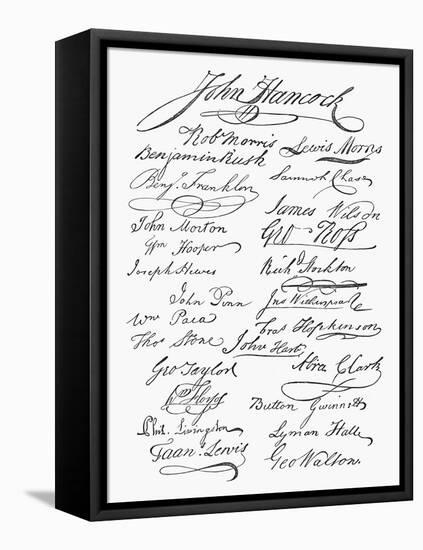 John Hancock
Rob Morris
Lewis Morris
Benjamin Rush
Benj. Franklin
Samuel Chase
James Wilson
John Morton
Geo Ross
Wm Hooper
Joseph Hewes
Richd Stockton
John Penn
Jno Witherspoon
Wm Paca
Fras Hopkinson
Thos Stone
John Hart
Geo Taylor
Abra Clark
Wm Floyd
Button Gwinnett
Phil. Livingston
Lyman Hall
Frans. Lewis
Geo Walton.